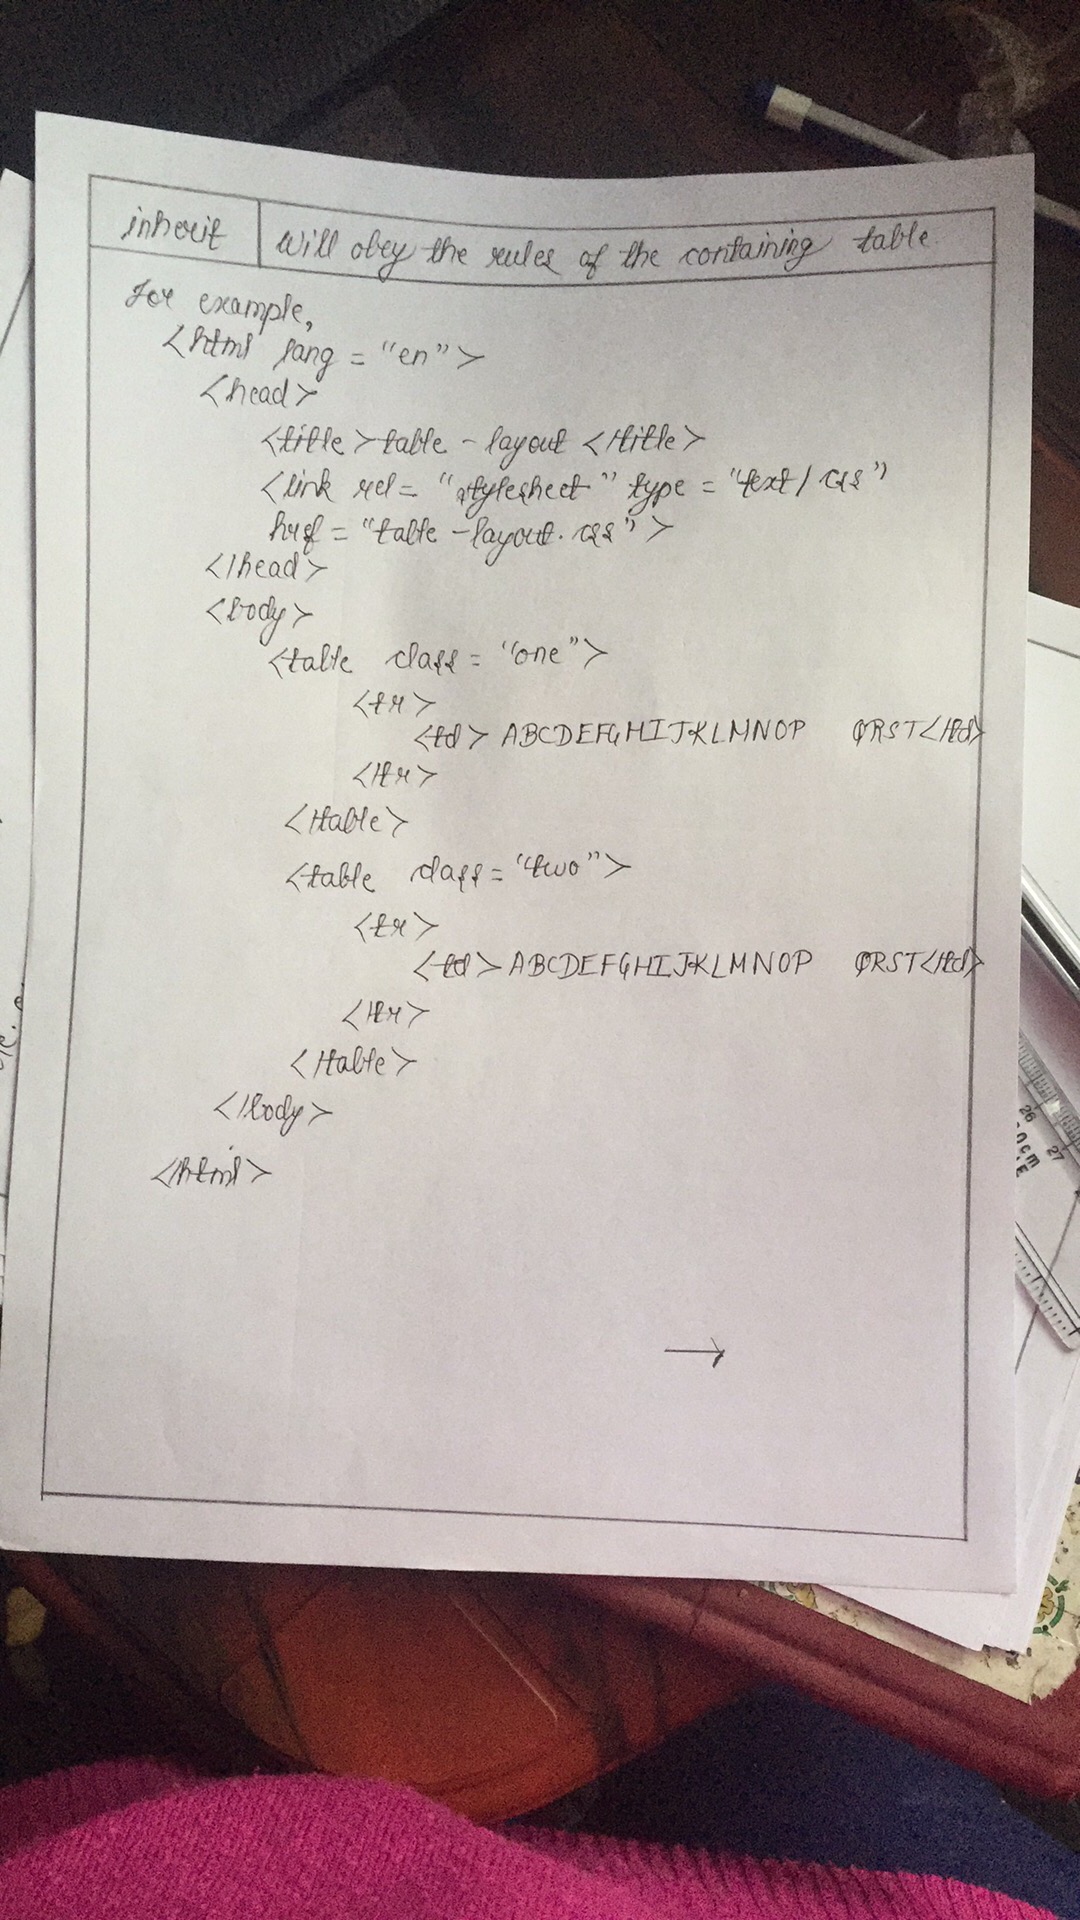 inherit will obey the rules of the containing table.
For example,
<html lang = "en">
<head>
<title>table - layout </title>
<link rel = "stylesheet" type = "text/css"
href = "table - layout.css">
</head>
<body>
<table class = "one">
<tr>
<td> ABCDEFGHIJKLMNOP QRST</td>
</tr>
</table>
<table class = "two">
<tr>
<td> ABCDEFGHIJKLMNOP QRST</td>
</tr>
</table>
</body>
</html>
→
26
27